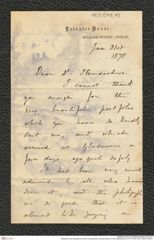 Leinster House,
KILDARE STREET, DUBLIN,
Jan 31st
1878
Dear Dr. Steindachner,
I cannot thank
you enough for the
very beautiful portfolio
which you have so kindly
sent me, and which
arrived at Glasnevin a
few days ago quite safely
It has been very much
admired by all who have
seen it, and the photographs
are so good that it is
almost like